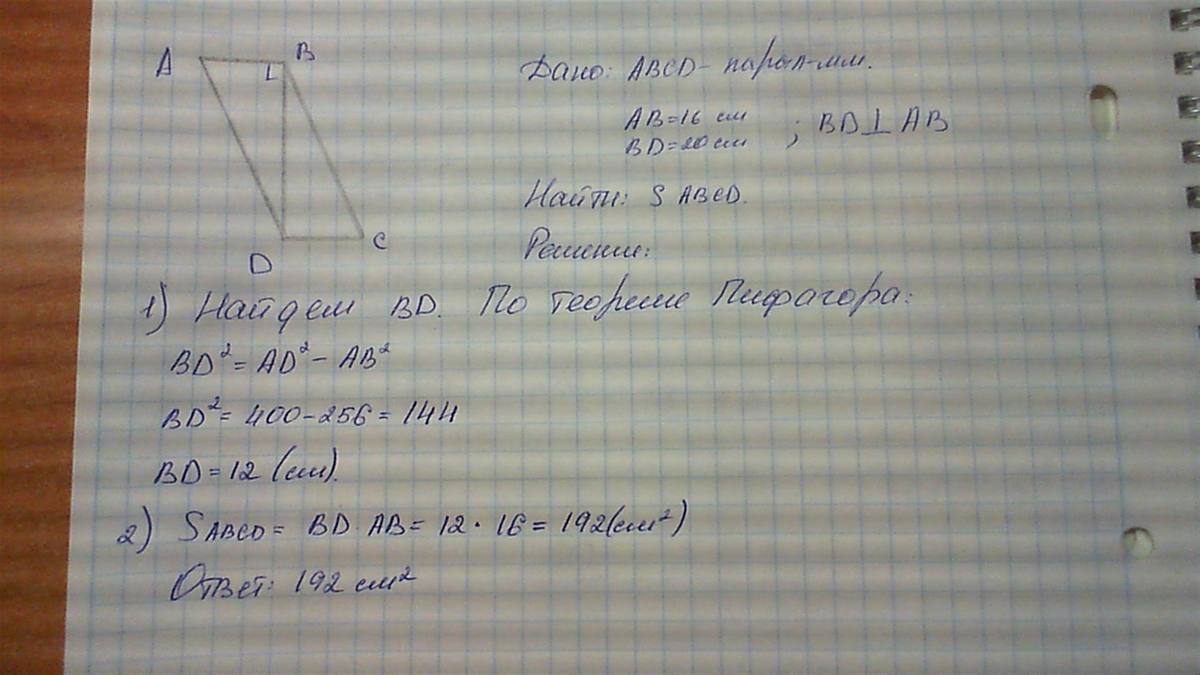 A
B
D
C
Дано: ABCD - парал-мм.
AB = 16 см
BD = 20 см ; BD ⊥ AB
Найти: S ABCD.
Решение:
1) Найдем BD. По теореме Пифагора:
BD² = AD² - AB²
BD² = 400 - 256 = 144
BD = 12 (см).
2) S ABCD = BD · AB = 12 · 16 = 192 (см²)
Ответ: 192 см²